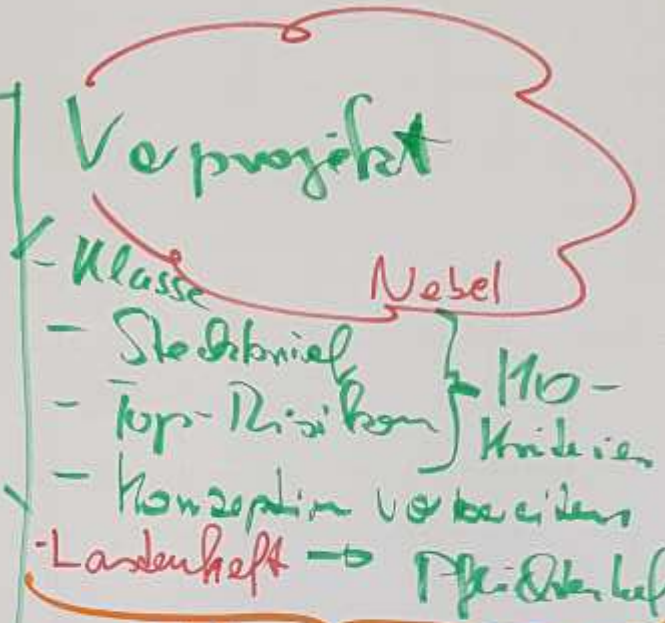 Vorprojekt
Nebel
- Klasse
- Steckbrief
- Top-Risiken
M0-
Kriterien
- Konzeption vorbereiten
- Lastenheft → Pflichtenhef